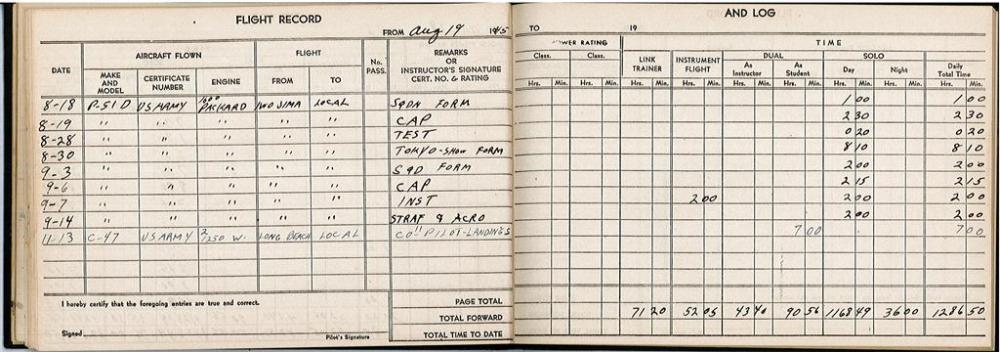 FLIGHT RECORD
FROM Aug 19 1945
DATE
AIRCRAFT FLOWN
MAKE AND MODEL
CERTIFICATE NUMBER
ENGINE
FLIGHT
FROM
TO
No. PASS.
REMARKS OR INSTRUCTOR'S SIGNATURE CERT. NO. & RATING
8-18 P-51D US ARMY PACKARD IWO JIMA LOCAL SQDN FORM
8-19 " " " " " CAP
8-28 " " " " " TEST
8-30 " " " " " TOKYO-SHOW FORM
9-3 " " " " " SQD FORM
9-6 " " " " " CAP
9-7 " " " " " INST
9-14 " " " " " STRAF & ACRO
11-13 C-47 US ARMY 2 1250 W. LONG BEACH LOCAL CO" PILOT-LANDINGS
I hereby certify that the foregoing entries are true and correct.
Signed
Pilot's Signature
PAGE TOTAL
TOTAL FORWARD
TOTAL TIME TO DATE
AND LOG
TO 19
POWER RATING
Class. Class.
TIME
LINK TRAINER
INSTRUMENT FLIGHT
DUAL
As Instructor
As Student
SOLO
Day
Night
Daily Total Time
Hrs. Min. Hrs. Min. Hrs. Min. Hrs. Min. Hrs. Min. Hrs. Min. Hrs. Min. Hrs. Min. Hrs. Min.
1 00 1 00
2 30 2 30
0 20 0 20
8 10 8 10
2 00 2 00
2 15 2 15
2 00 2 00 2 00
2 00 2 00
7 00 7 00
71 20 52 05 43 40 90 56 1168 49 36 00 1286 50